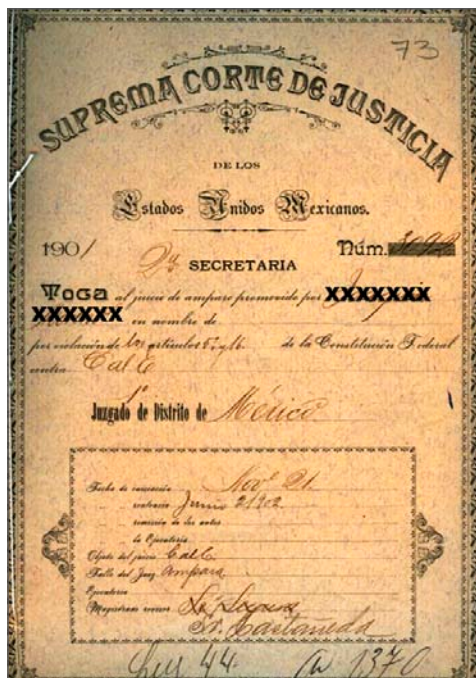 73
SUPREMA CORTE DE JUSTICIA
DE LOS
Estados Unidos Mexicanos.
1901 Núm.
SECRETARIA
Toca al juicio de amparo promovido por XXXXXXX
XXXXXX en nombre de
por violación de los artículos 5º y 16 de la Constitución Federal
contra Cal C
1º
Juzgado de Distrito de México
Fecha de iniciación Nov.e 21.
sentencia Junio 2/902
remisión de los autos
la Ejecutoria
Objeto del juicio Cal C
Fallo del Juez Ampara
Ejecutoria
Magistrado
Sr. Castañeda
44. a 1370